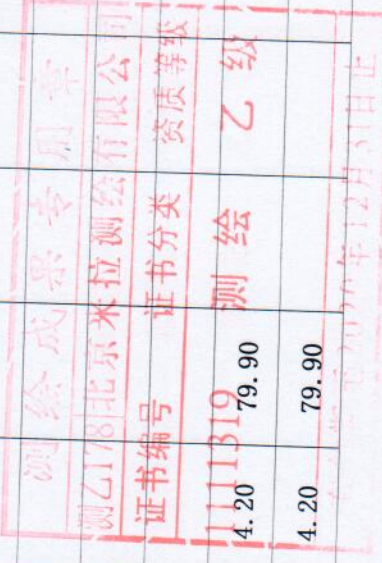 测绘成果专用章
测乙178 北京米拉测绘有限公司
证书编号 证书分类 资质等级
11111319 测绘 乙级
2026年12月31日止
4.20 79.90
4.20 79.90